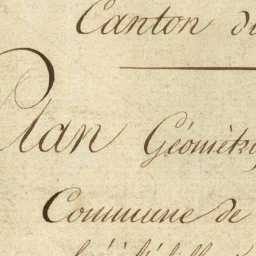 Canton d
Plan Géomét
Commune de